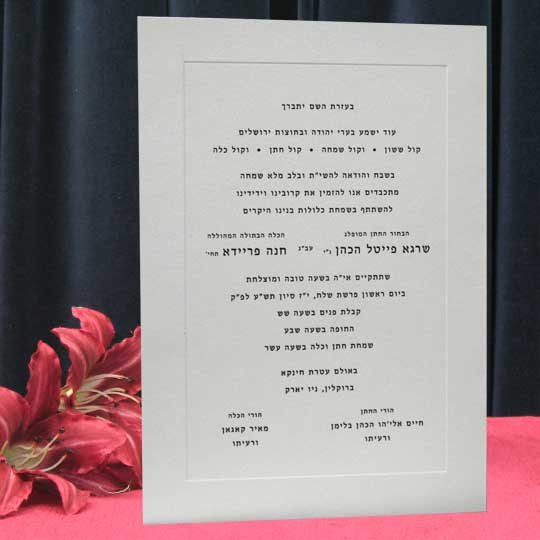 בעזרת השם יתברך
עוד ישמע בערי יהודה ובחוצות ירושלים
קול ששון • וקול שמחה • קול חתן • וקול כלה
בשבח והודאה להשי"ת ובלב מלא שמחה
מתכבדים אנו להזמין את קרובינו וידידינו
להשתתף בשמחת כלולות בנינו היקרים
הבחור החתן המופלג
שרגא פייטל הכהן ני"
עב"ג
הכלה הבתולה המהוללה
חנה פריידא תחי'
שתתקיים אי"ה בשעה טובה ומוצלחת
ביום ראשון פרשת שלח, י"ז סיון תש"ע לפ"ק
קבלת פנים בשעה שש
החופה בשעה שבע
שמחת חתן וכלה בשעה עשר
באולם עטרת חינקא
ברוקלין, ניו יארק
הורי החתן
חיים אלי'הו הכהן בלימן
ורעיתו
הורי הכלה
מאיר קאגאן
ורעיתו